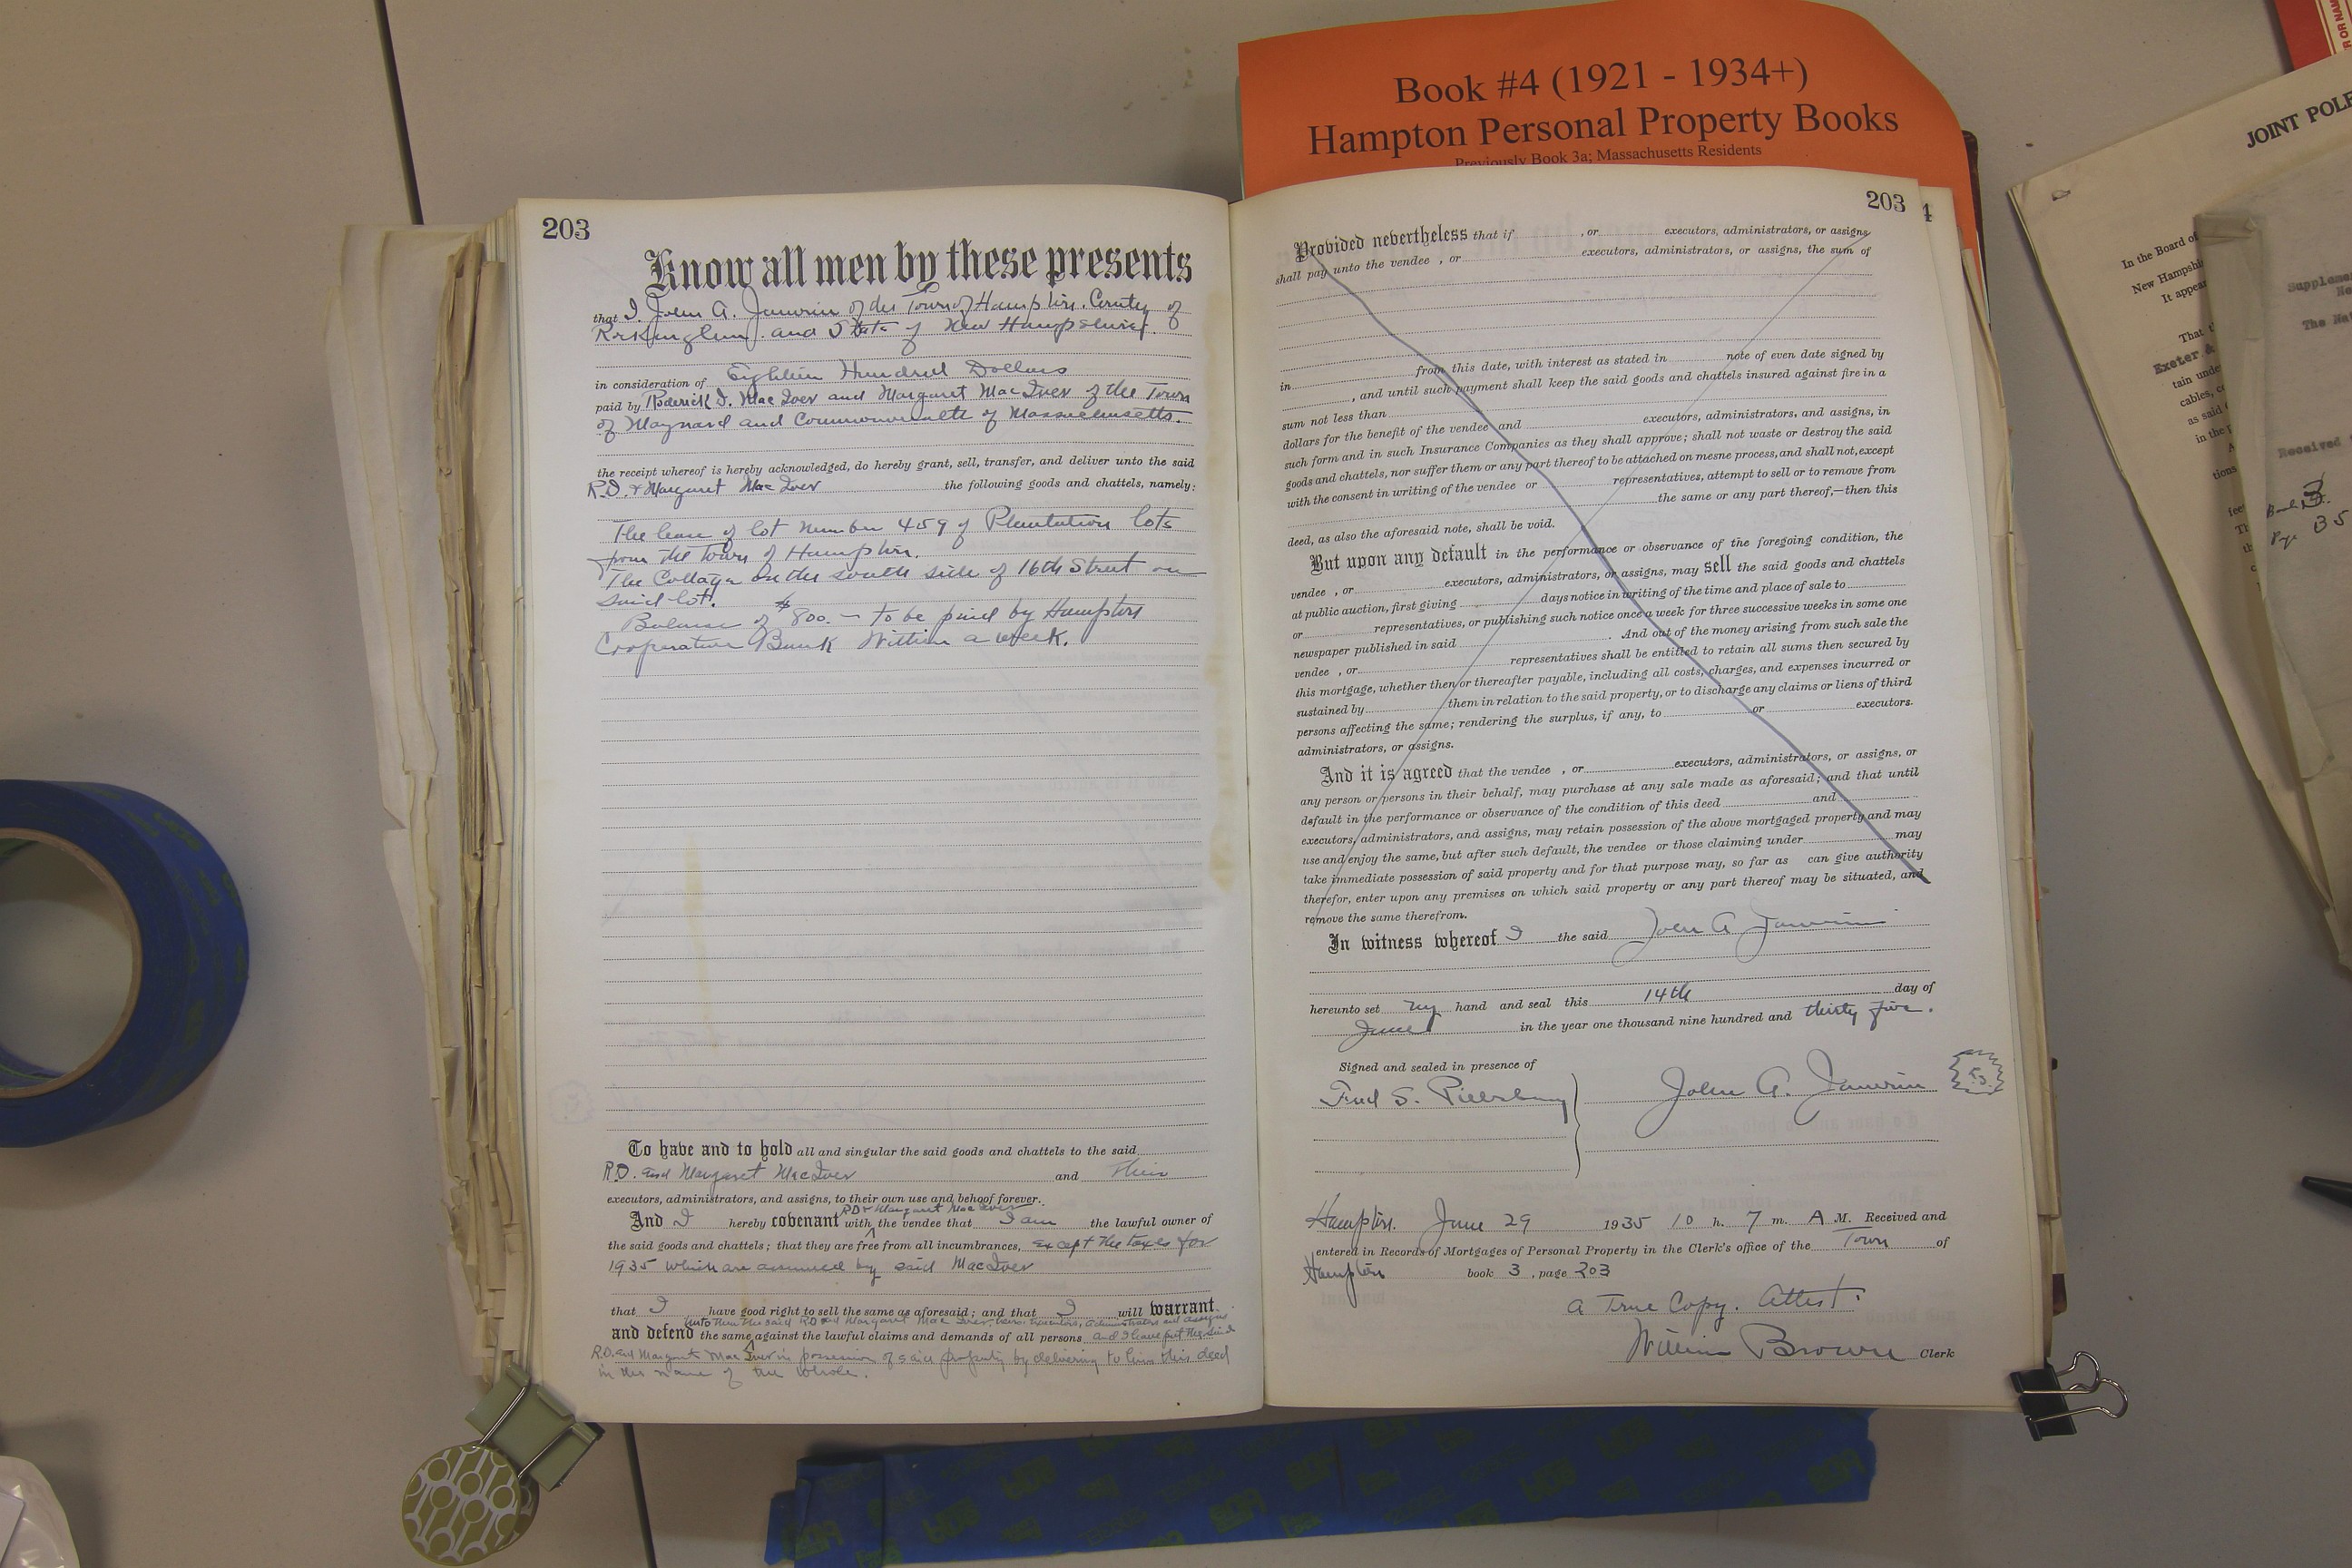 Book #4 (1921 - 1934+)
Hampton Personal Property Books
Previously Book 3a; Massachusetts Residents
OR NAM
JOINT POLE
In the Board of
New Hampshi
It appear
That t
Exeter &
tain unde
cables, c
as said
in the p
tions
Supplemen
The Na
Received
Page 35
203
Know all men by these presents
that I, John A. Janvrin of the Town of Hampton, County of
Rockingham and State of New Hampshire.
in consideration of Eighteen Hundred Dollars
paid by Roderick D. MacIver and Margaret MacIver of the Town
of Maynard and Commonwealth of Massachusetts.
the receipt whereof is hereby acknowledged, do hereby grant, sell, transfer, and deliver unto the said
R.D. & Margaret MacIver the following goods and chattels, namely:
The lease of lot number 459 of Plantation lots
from the Town of Hampton.
The Cottage on the south side of 16th Street on
said lot.
Balance of $800.— to be paid by Hampton
Cooperative Bank Within a week.
To have and to hold all and singular the said goods and chattels to the said
R.D. and Margaret MacIver and Their
executors, administrators, and assigns, to their own use and behoof forever.
RD & Margaret MacIver
And I hereby covenant with ^ the vendee that I am the lawful owner of
the said goods and chattels; that they are free from all incumbrances, except the taxes for
1935 which are assumed by said MacIver
that I have good right to sell the same as aforesaid; and that I will warrant
unto them the said RD and Margaret MacIver, heirs, executors, administrators and assigns
and defend the same ^ against the lawful claims and demands of all persons and I have put the said
R.D. and Margaret MacIver in possession of said property by delivering to him this deed
in the name of the whole.
203
4
Provided nevertheless that if , or executors, administrators, or assigns
shall pay unto the vendee , or executors, administrators, or assigns, the sum of
from this date, with interest as stated in note of even date signed by
in
, and until such payment shall keep the said goods and chattels insured against fire in a
sum not less than executors, administrators, and assigns, in
dollars for the benefit of the vendee and
such form and in such Insurance Companies as they shall approve; shall not waste or destroy the said
goods and chattels, nor suffer them or any part thereof to be attached on mesne process, and shall not, except
with the consent in writing of the vendee or representatives, attempt to sell or to remove from
the same or any part thereof,—then this
deed, as also the aforesaid note, shall be void.
But upon any default in the performance or observance of the foregoing condition, the
vendee , or executors, administrators, or assigns, may sell the said goods and chattels
at public auction, first giving days notice in writing of the time and place of sale to
or representatives, or publishing such notice once a week for three successive weeks in some one
newspaper published in said . And out of the money arising from such sale the
vendee , or representatives shall be entitled to retain all sums then secured by
this mortgage, whether then or thereafter payable, including all costs, charges, and expenses incurred or
sustained by them in relation to the said property, or to discharge any claims or liens of third
persons affecting the same; rendering the surplus, if any, to or executors.
administrators, or assigns.
And it is agreed that the vendee , or executors, administrators, or assigns, or
any person or persons in their behalf, may purchase at any sale made as aforesaid; and that until
default in the performance or observance of the condition of this deed and
executors, administrators, and assigns, may retain possession of the above mortgaged property and may
use and enjoy the same, but after such default, the vendee or those claiming under may
take immediate possession of said property and for that purpose may, so far as can give authority
therefor, enter upon any premises on which said property or any part thereof may be situated, and
remove the same therefrom.
In witness whereof I the said John A Janvrin
hereunto set my hand and seal this 14th day of
June in the year one thousand nine hundred and thirty five.
Signed and sealed in presence of
Fred S. Pillsbury
John A. Janvrin
Hampton. June 29 1935 10 h. 7 m. A M. Received and
entered in Records of Mortgages of Personal Property in the Clerk's office of the Town of
Hampton book 3, page 203
A True Copy. Attest:
William Brown Clerk